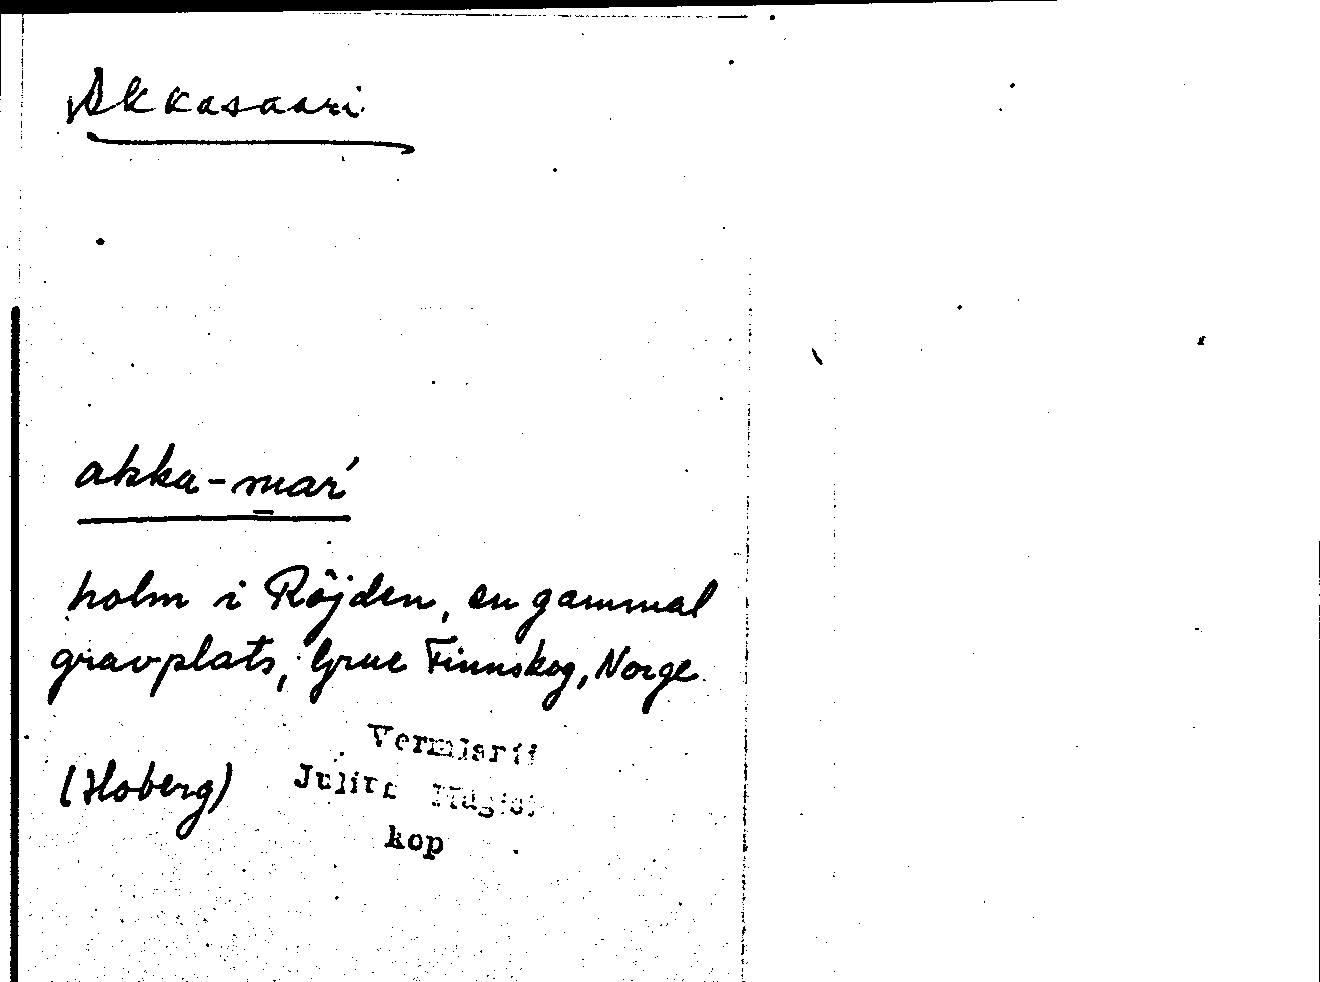 Akkasaari
akka-mar´
holm i Röjden, en gammal
gravplats, Grue Finnskog, Norge
(Hoberg)
Vermlanti
Julius Mägiste
kop